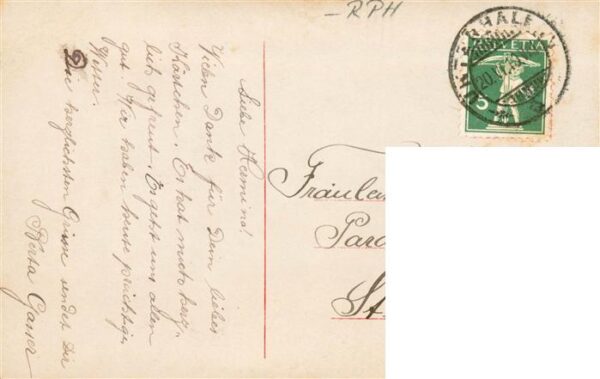 -RPH
UNTERHALLAU
HELVETIA
5
Liebe Hermina!
Vielen Dank für Dein liebes
Kärtchen. Es hat mich herz-
lich gefreut. Es geht uns allen
gut. Wir haben heute prächtiges
Wetter.
Die herzlichsten Grüsse sendet Dir
Berta Gasser
Fräulein
Para
St